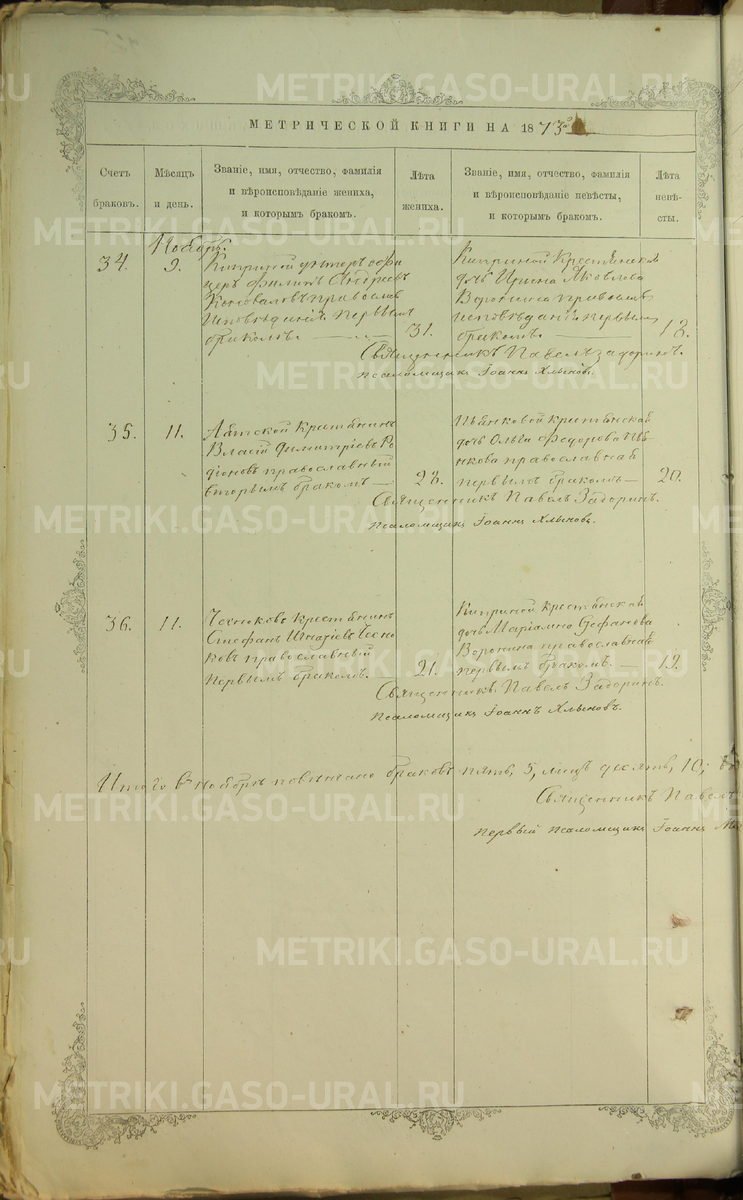 МЕТРИЧЕСКОЙ КНИГИ НА 1873
Счетъ браковъ.
Мѣсяцъ и день.
Званіе, имя, отчество, фамилія и вѣроисповѣданіе жениха, и которымъ бракомъ.
Лѣта жениха.
Званіе, имя, отчество, фамилія и вѣроисповѣданіе невѣсты, и которымъ бракомъ.
Лѣта невѣсты.
Ноябрь.
34. 9. Киприной унтеръ офи
церъ Филипъ Андреевъ
Коноваловъ православ
исповѣданія первымъ
бракомъ. 31.
Киприной крестьянская
дочь Ирина Яковлева
Воронина православ
исповѣданія первымъ
бракомъ. 18.
Священникъ Павелъ Задоринъ.
Псаломщикъ Іоаннъ Хлыновъ.
35. 11. крестьянинъ
Власій Димитріевъ Ро
діоновъ православный
вторымъ бракомъ 28.
крестьянская
дочь Ольга Федорова
православная
первымъ бракомъ 20.
Священникъ Павелъ Задоринъ.
Псаломщикъ Іоаннъ Хлыновъ.
36. 11. Чеснокова крестьянинъ
Стефанъ Игнатіевъ Чесно
ковъ православный
первымъ бракомъ. 21.
Киприной крестьянская
дочь Маріамна Стефанова
Воронина православная
первымъ бракомъ. 19.
Священникъ Павелъ Задоринъ.
Псаломщикъ Іоаннъ Хлыновъ.
Итого въ ноябрѣ повѣнчано браковъ пять, 5, лицъ десять, 10;
Священникъ Павелъ
первый псаломщикъ Іоаннъ
METRIKI.GASO-URAL.RU